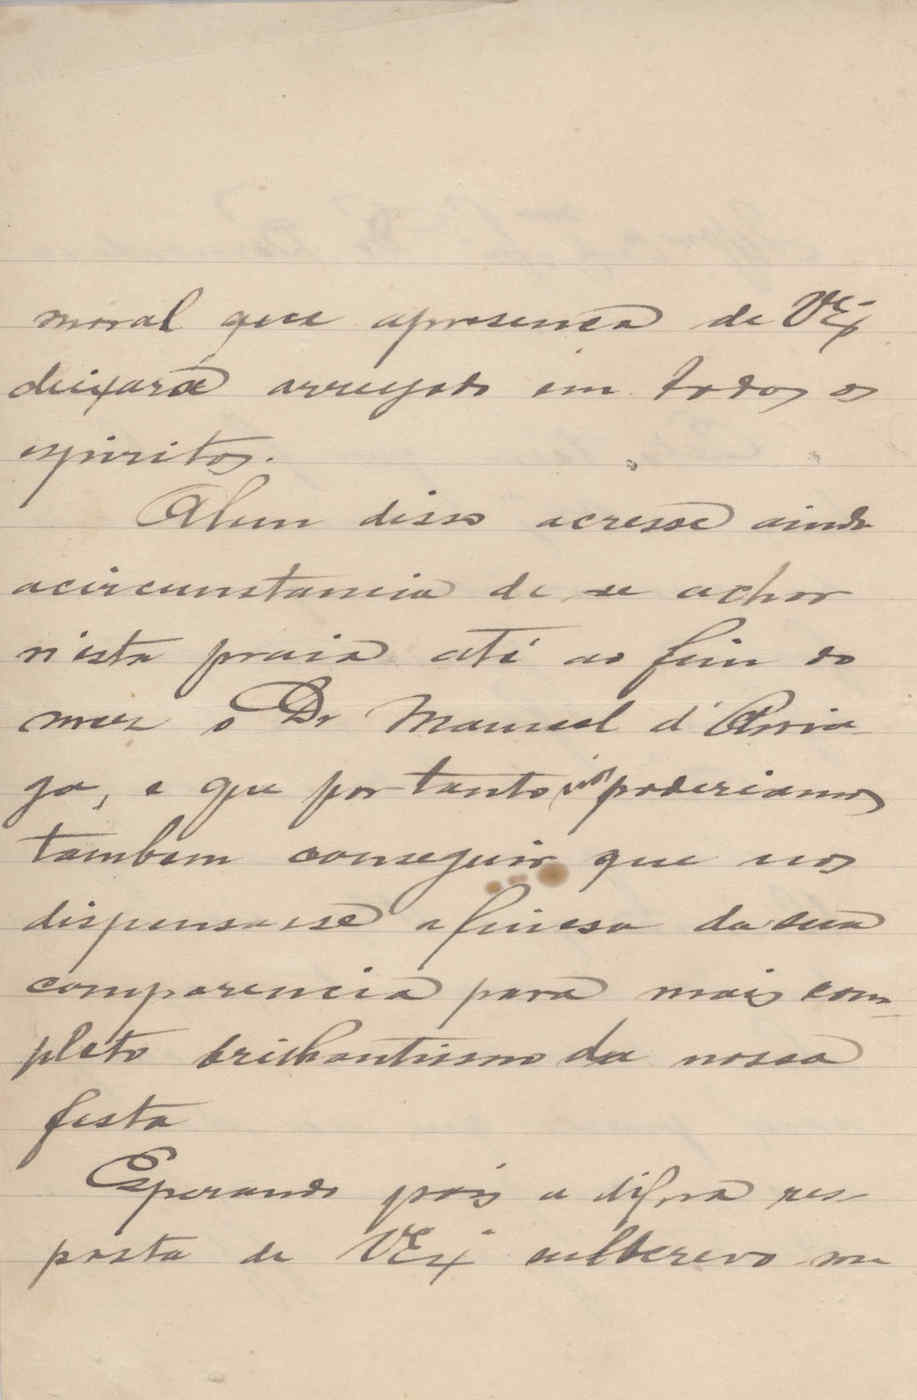 moral que a presença de VEx
deixará arreigado em todos os
espiritos.
Alem disso acresce ainda
a circunstancia de se achar
n'esta praia até ao fim do
mez o Dr Manuel d'Arria-
ga, e que por tanto poderiamos
tambem conseguir que nos
dispensasse a finesa da sua
comparencia para mais com-
pleto brilhantismo da nossa
festa
Esperando pois a digna res-
posta de VEx subscrevo me